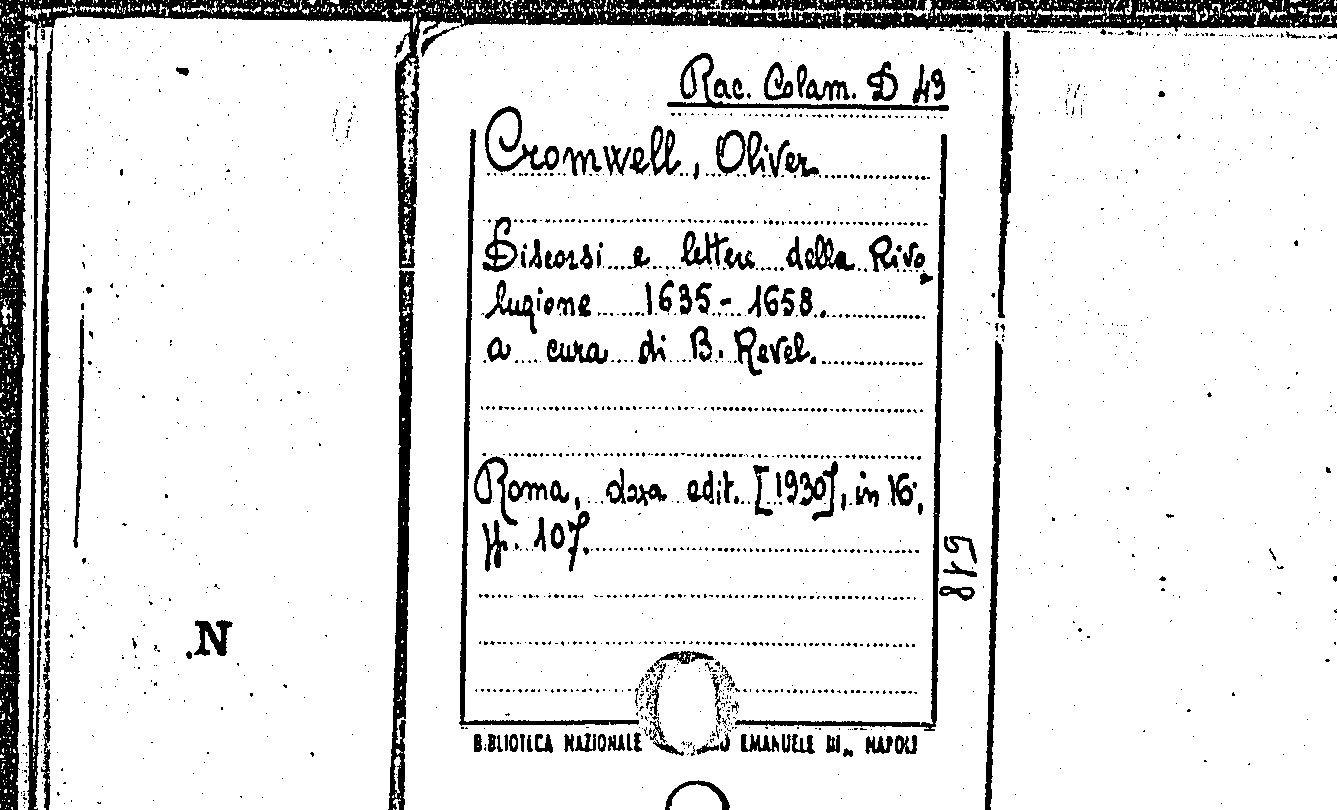 Rac. Colam. D 49
Cromwell, Oliver
Discorsi e lettere della Rivo
luzione 1635-1658.
a cura di B. Revel.
Roma, doxa edit. [1930], in 16°,
pp. 107.
618
.N
BIBLIOTECA NAZIONALE EMANUELE III., NAPOLI